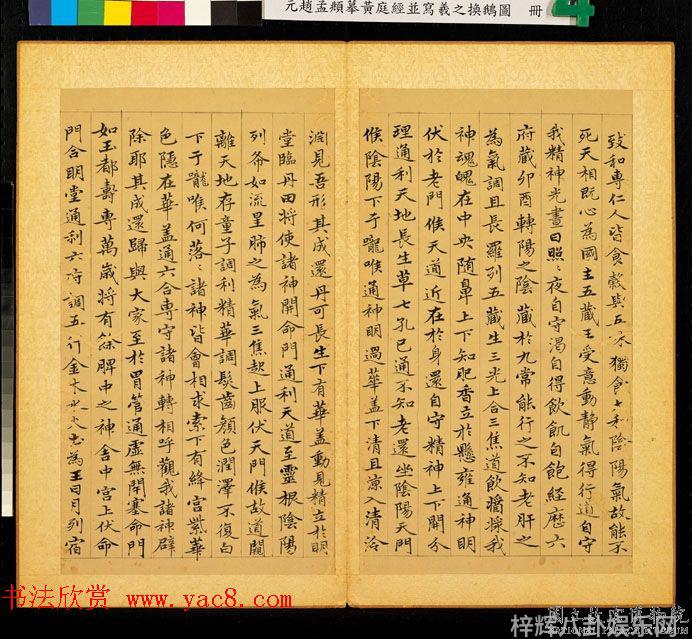 元趙孟頫摹黃庭經並寫羲之換鵝圖 冊
致和專仁人皆食穀與五味獨食太和陰陽氣故能不
死天相既心為國主五藏王受意動靜氣得行道自守
我精神光晝日照〻夜自守渴自得飲飢自飽經歷六
府藏卯酉轉陽之陰藏於九常能行之不知老肝之
為氣調且長羅列五藏生三光上合三焦道飲醬漿我
神魂魄在中央随鼻上下知肥香立於懸雍通神明
伏於老門候天道近在於身還自守精神上下開分
理通利天地長生草七孔已通不知老還坐陰陽天門
候陰陽下于嚨喉通神明過華盖下清且涼入清泠
淵見吾形其成還丹可長生下有華盖動見精立於明
堂臨丹田将使諸神開命門通利天道至靈根陰陽
列布如流星肺之為氣三焦起上服伏天門候故道闚
離天地存童子調利精華調髮齒顏色潤澤不復白
下于嚨喉何落〻諸神皆會相求索下有絳宫紫華
色隱在華盖通六合專守諸神轉相呼觀我諸神辟
除耶其成還歸與大家至於胃管通虛無閉塞命門
如玉都壽專萬歲将有餘脾中之神舍中宫上伏命
門合明堂通利六府調五行金木水火土為王日月列宿
书法欣赏 www.yac8.com
梓辉八卦娱乐网